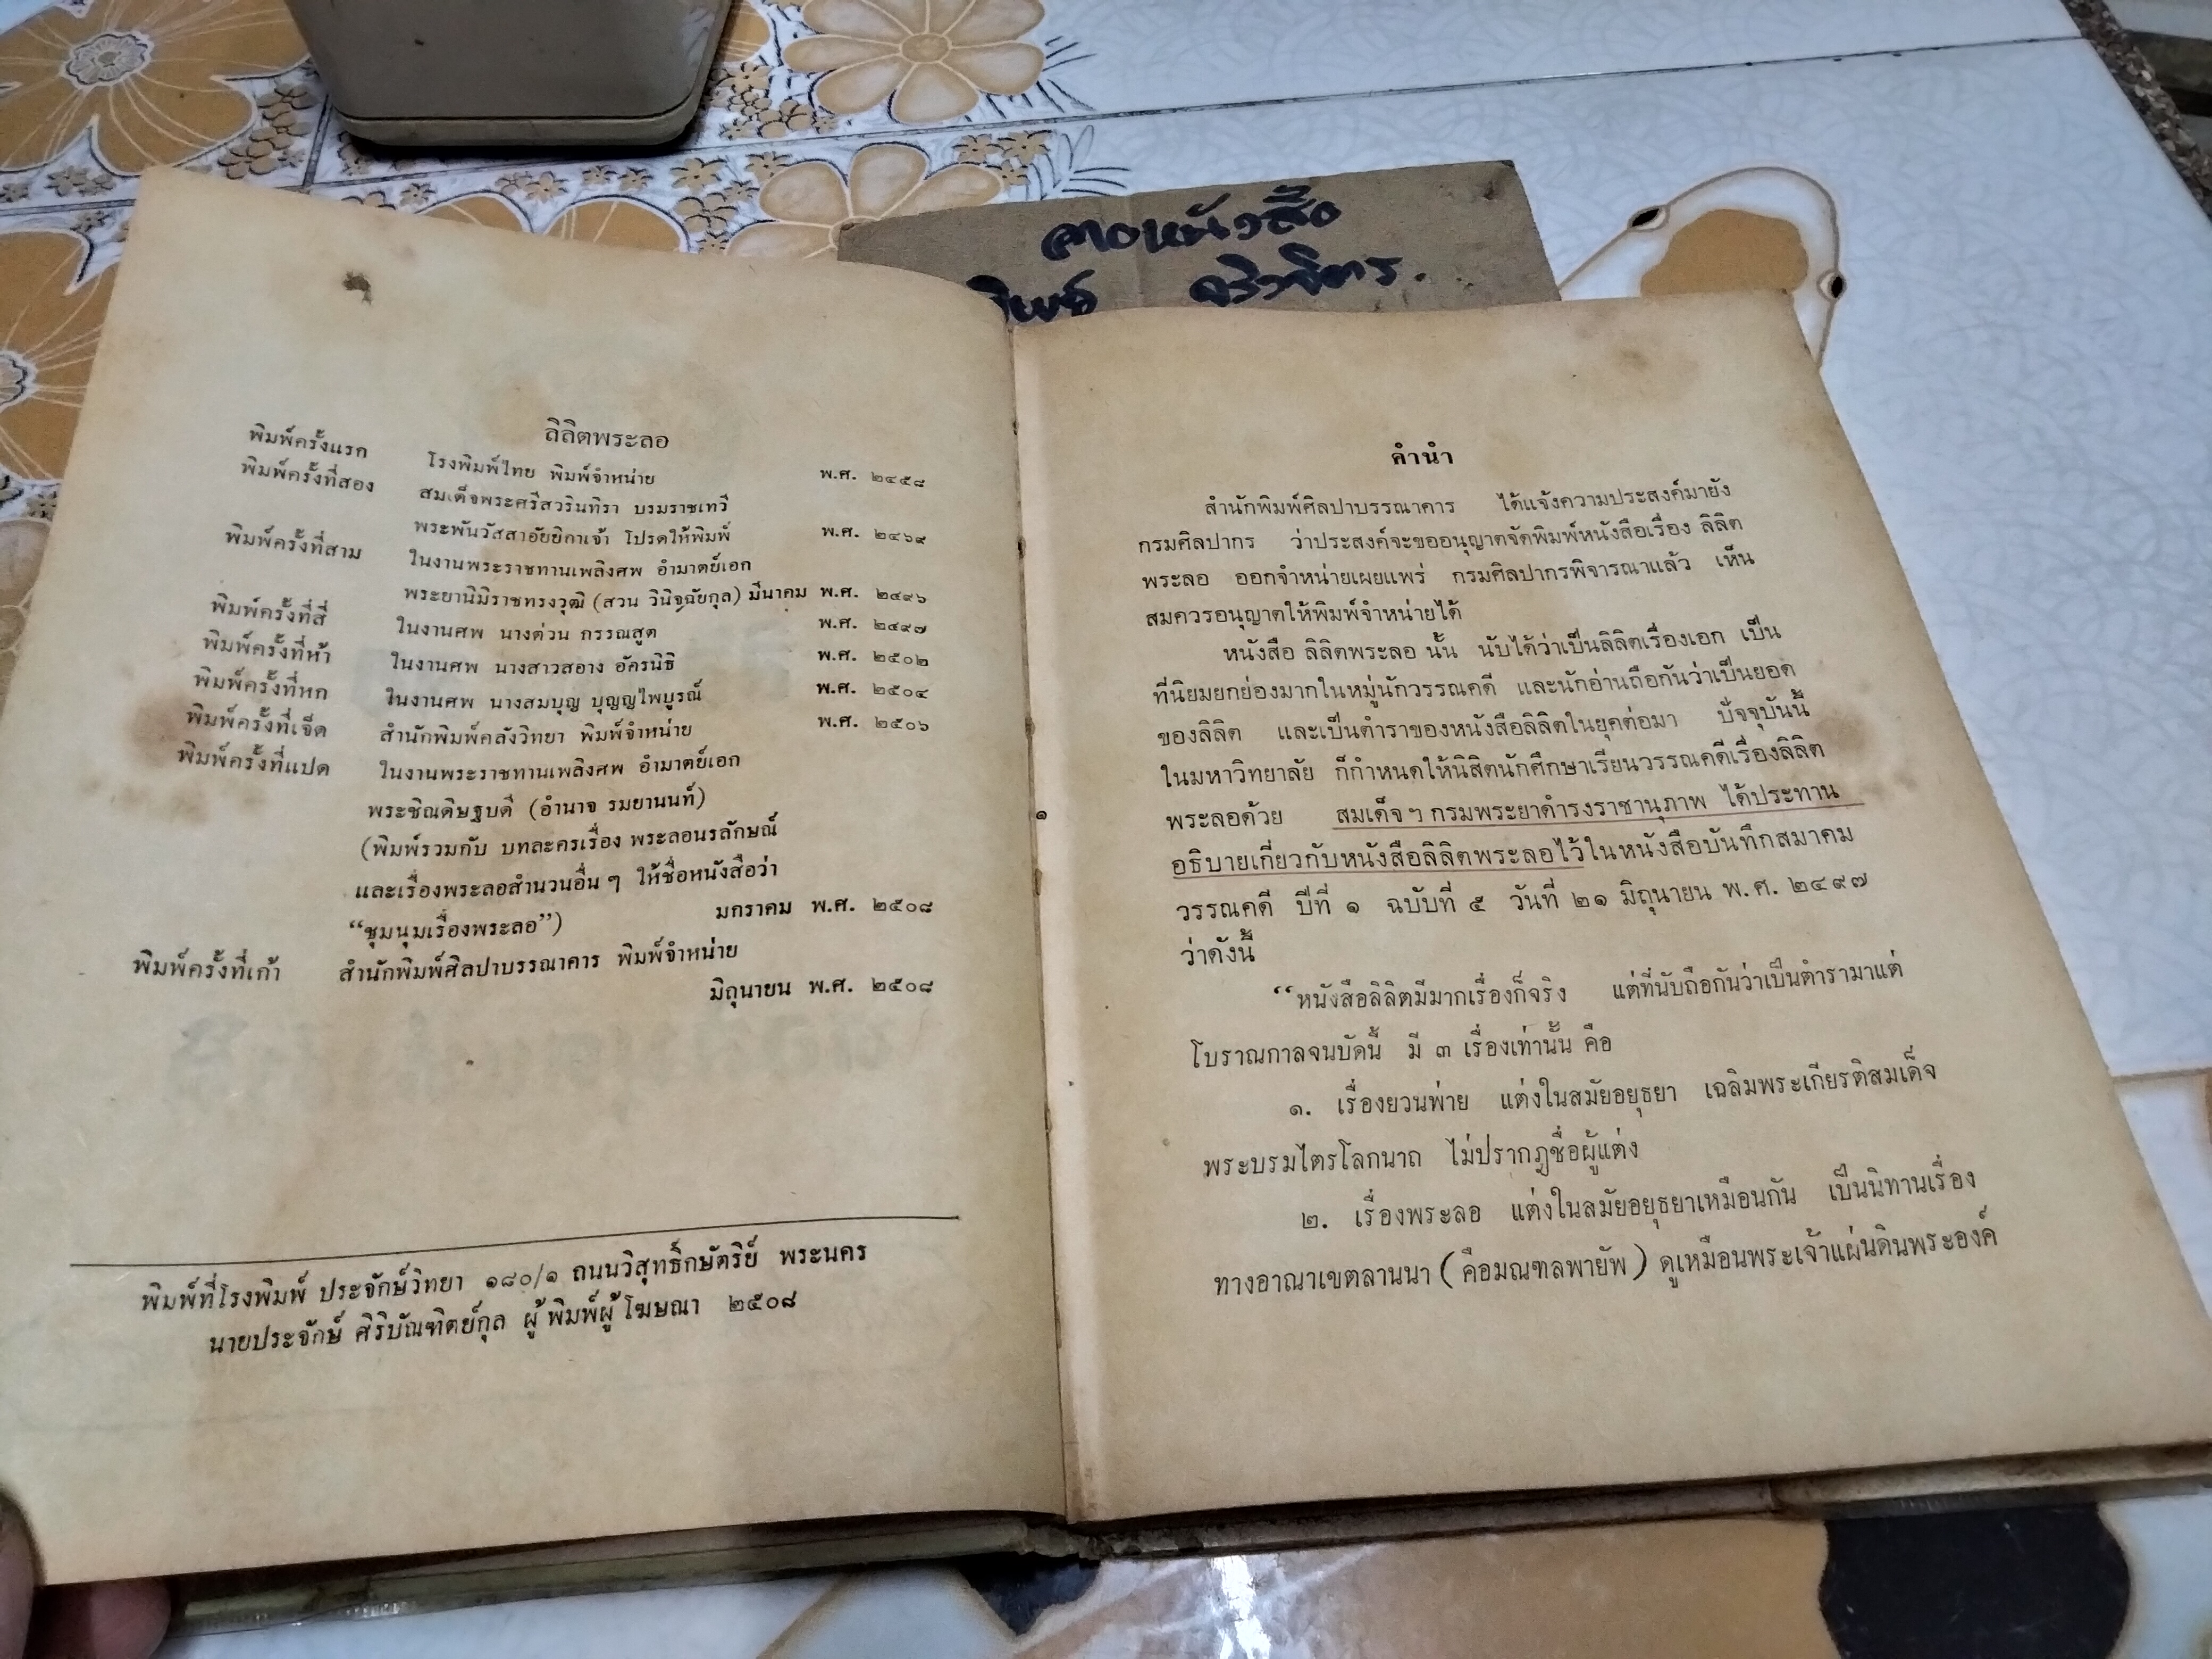 ลายหนังสือ
ลิลิตพระลอ
พิมพ์ครั้งแรก โรงพิมพ์ไทย พิมพ์จำหน่าย พ.ศ. ๒๔๕๘
พิมพ์ครั้งที่สอง สมเด็จพระศรีสวรินทิรา บรมราชเทวี
พระพันวัสสาอัยยิกาเจ้า โปรดให้พิมพ์ พ.ศ. ๒๔๖๙
พิมพ์ครั้งที่สาม ในงานพระราชทานเพลิงศพ อำมาตย์เอก
พระยานิมิราชทรงวุฒิ (สวน วินิจฉัยกุล) มีนาคม พ.ศ. ๒๔๙๖
พิมพ์ครั้งที่สี่ ในงานศพ นางต่วน กรรณสูต พ.ศ. ๒๔๙๗
พิมพ์ครั้งที่ห้า ในงานศพ นางสาวสอาง อัครนิธิ พ.ศ. ๒๕๐๒
พิมพ์ครั้งที่หก ในงานศพ นางสมบุญ บุญญไพบูรณ์ พ.ศ. ๒๕๐๔
พิมพ์ครั้งที่เจ็ด สำนักพิมพ์คลังวิทยา พิมพ์จำหน่าย พ.ศ. ๒๕๐๖
พิมพ์ครั้งที่แปด ในงานพระราชทานเพลิงศพ อำมาตย์เอก
พระชิณดิษฐบดี (อำนาจ รมยานนท์)
(พิมพ์รวมกับ บทละครเรื่อง พระลอนรลักษณ์
และเรื่องพระลอสำนวนอื่น ๆ ให้ชื่อหนังสือว่า
“ชุมนุมเรื่องพระลอ”) มกราคม พ.ศ. ๒๕๐๘
พิมพ์ครั้งที่เก้า สำนักพิมพ์ศิลปาบรรณาคาร พิมพ์จำหน่าย
มิถุนายน พ.ศ. ๒๕๐๘
พิมพ์ที่โรงพิมพ์ ประจักษ์วิทยา ๑๘๐/๑ ถนนวิสุทธิ์กษัตริย์ พระนคร
นายประจักษ์ ศิริบัณฑิตย์กุล ผู้พิมพ์ผู้โฆษณา ๒๕๐๘
คำนำ
สำนักพิมพ์ศิลปาบรรณาคาร ได้แจ้งความประสงค์มายัง
กรมศิลปากร ว่าประสงค์จะขออนุญาตจัดพิมพ์หนังสือเรื่อง ลิลิต
พระลอ ออกจำหน่ายเผยแพร่ กรมศิลปากรพิจารณาแล้ว เห็น
สมควรอนุญาตให้พิมพ์จำหน่ายได้
หนังสือ ลิลิตพระลอ นั้น นับได้ว่าเป็นลิลิตเรื่องเอก เป็น
ที่นิยมยกย่องมากในหมู่นักวรรณคดี และนักอ่านถือกันว่าเป็นยอด
ของลิลิต และเป็นตำราของหนังสือลิลิตในยุคต่อมา ปัจจุบันนี้
ในมหาวิทยาลัย ก็กำหนดให้นิสิตนักศึกษาเรียนวรรณคดีเรื่องลิลิต
พระลอด้วย สมเด็จ ฯ กรมพระยาดำรงราชานุภาพ ได้ประทาน
อธิบายเกี่ยวกับหนังสือลิลิตพระลอไว้ในหนังสือบันทึกสมาคม
วรรณคดี ปีที่ ๑ ฉบับที่ ๕ วันที่ ๒๑ มิถุนายน พ.ศ. ๒๔๙๗
ว่าดังนี้
“หนังสือลิลิตมีมากเรื่องก็จริง แต่ที่นับถือกันว่าเป็นตำรามาแต่
โบราณกาลจนบัดนี้ มี ๓ เรื่องเท่านั้น คือ
๑. เรื่องยวนพ่าย แต่งในสมัยอยุธยา เฉลิมพระเกียรติสมเด็จ
พระบรมไตรโลกนาถ ไม่ปรากฏชื่อผู้แต่ง
๒. เรื่องพระลอ แต่งในสมัยอยุธยาเหมือนกัน เป็นนิทานเรื่อง
ทางอาณาเขตลานนา ( คือมณฑลพายัพ ) ดูเหมือนพระเจ้าแผ่นดินพระองค์
๑